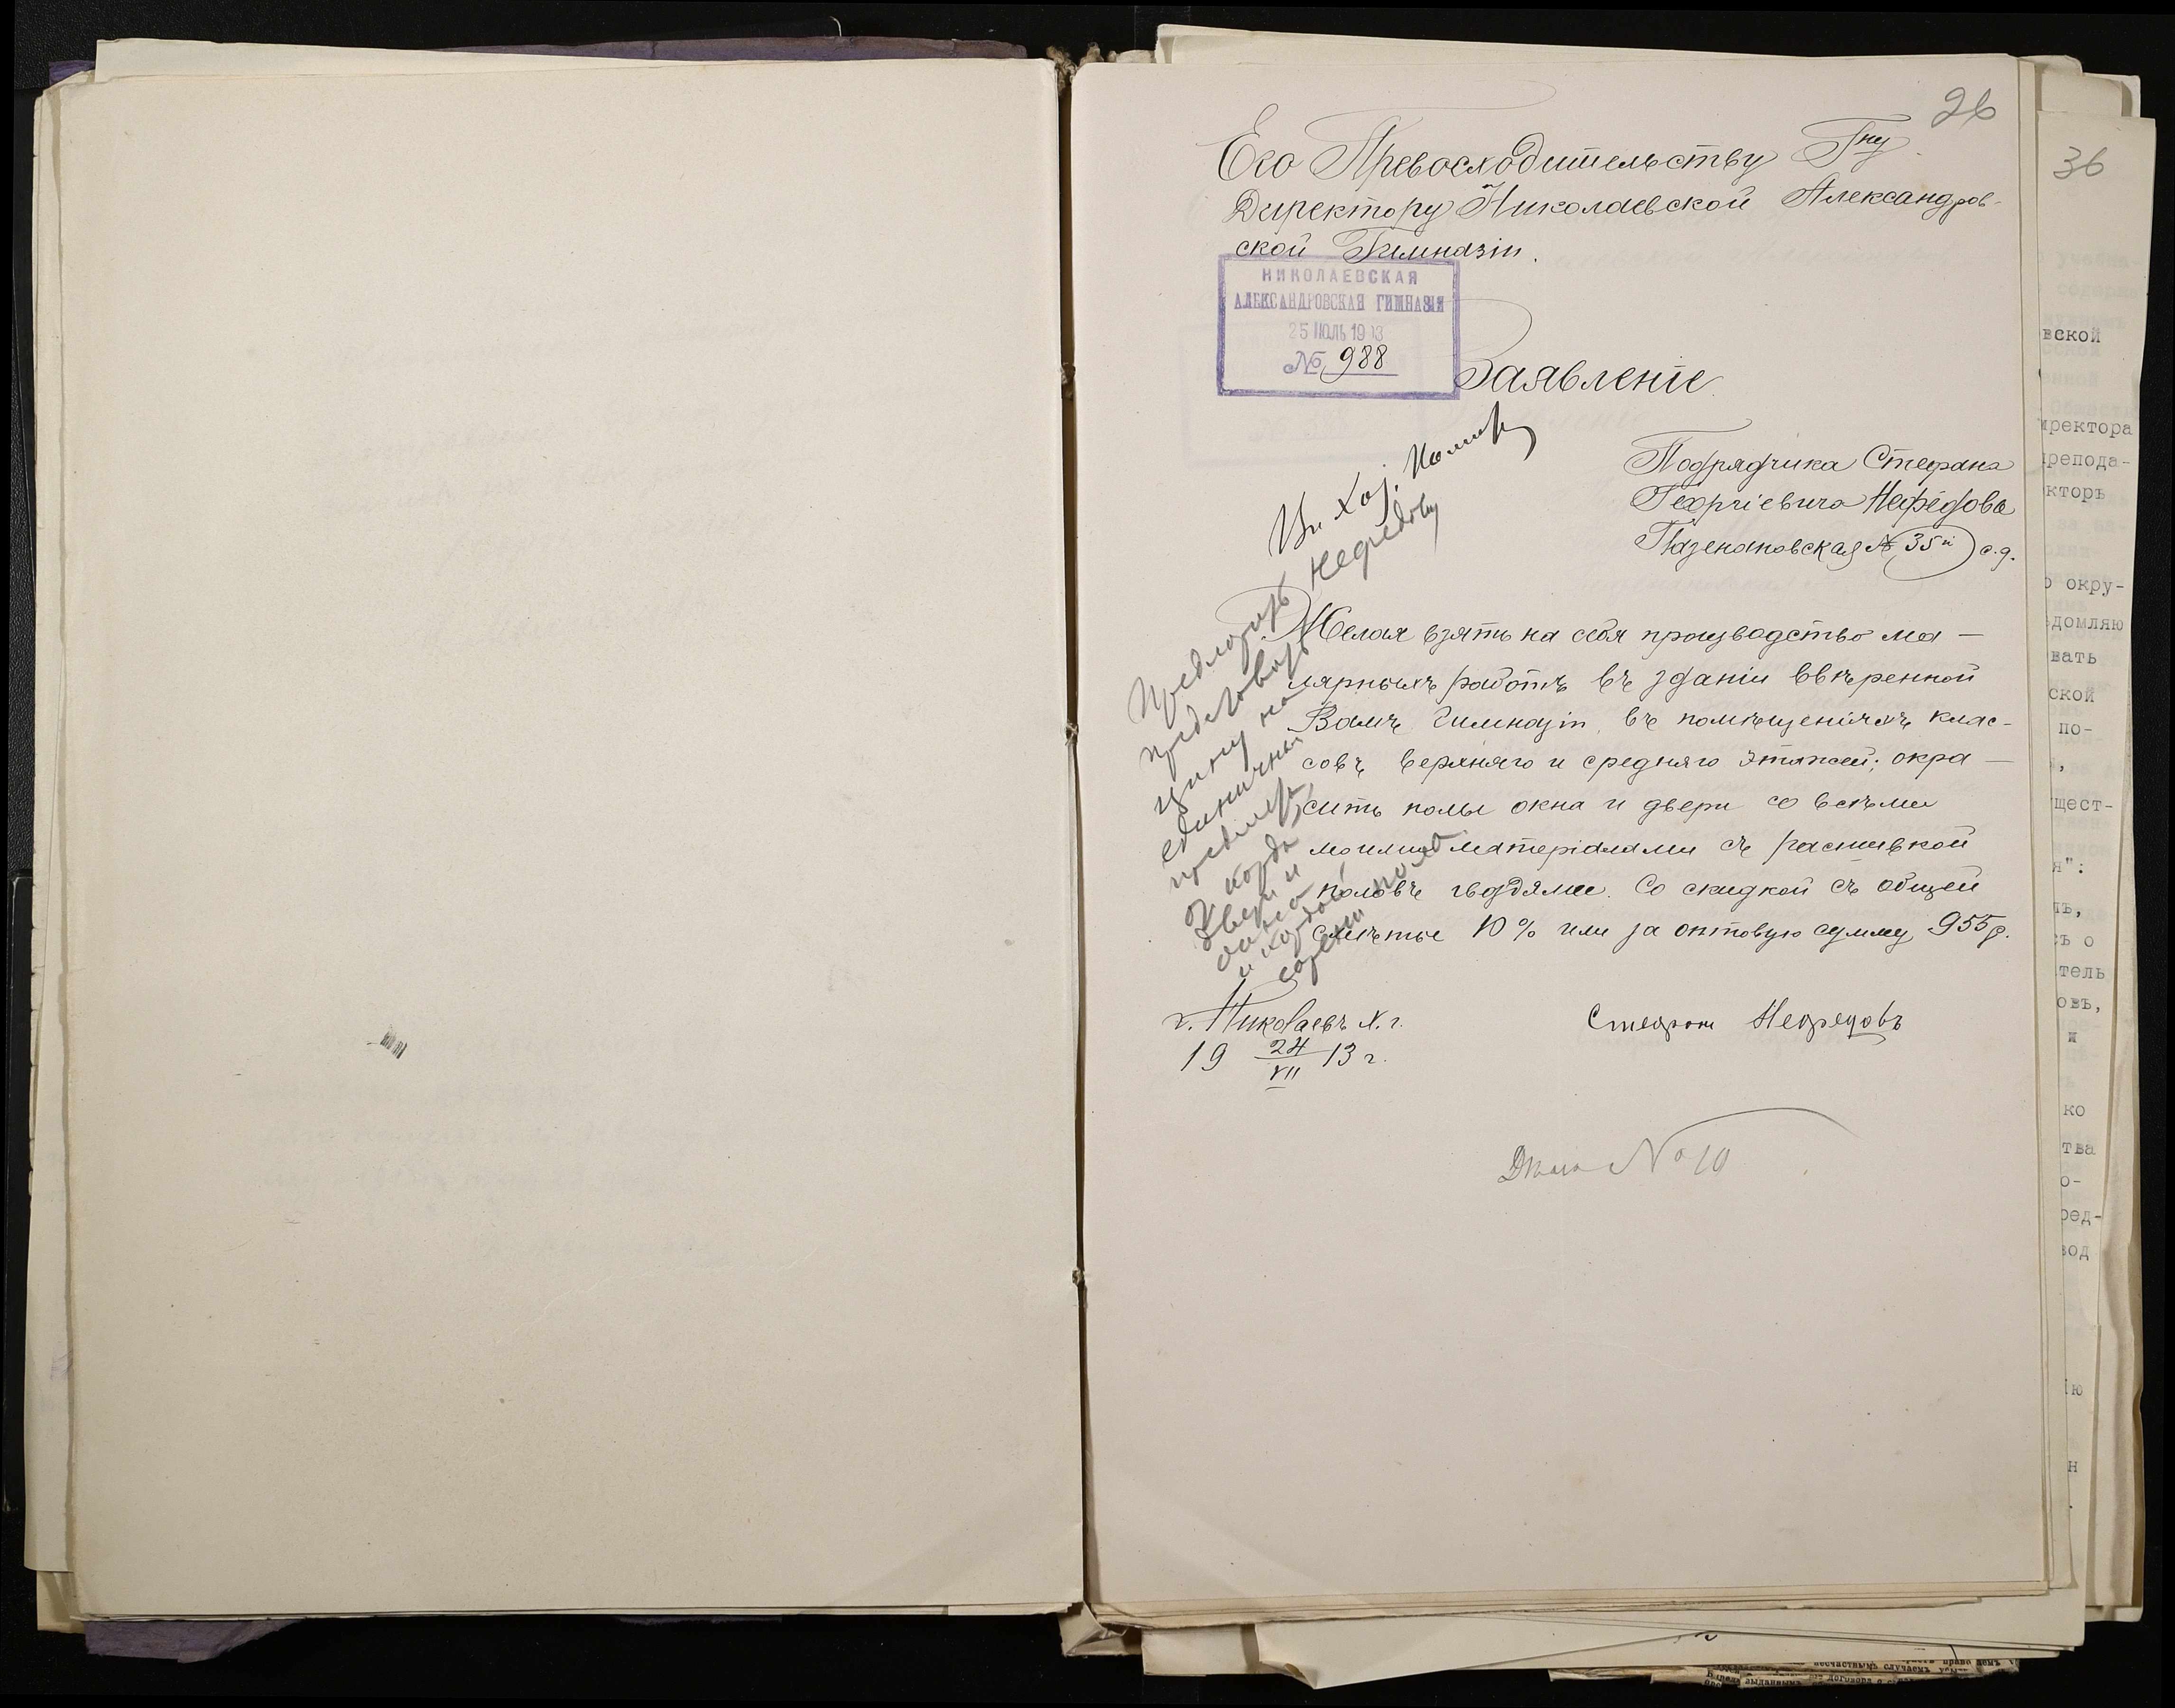 26
Его Превосходительству Гну
Директору Николаевской Александров-
ской Гимназіи.
НИКОЛАЕВСКАЯ
АЛЕКСАНДРОВСКАЯ ГИМНАЗІЯ
25 ІЮЛЬ 1913
№ 988
Заявленіе
Подрядчика Стефана
Георгіевича Нефедова
№ 35й с.д.
Въ Хоз. Комит.
Предложить Нефедову
представить
цину на
единичный
предметъ
каждо
двери и
окна
и каждой
сажени пола
Желая взять на себя производство ма-
лярныхъ работъ въ зданіи ввѣренной
Вамъ Гимназіи, въ помѣщеніяхъ клас-
совъ верхняго и средняго этажей; окра-
сить полы окна и двери со всѣми
моими матеріалами съ расшивкой
половъ гвоздями. Со скидкой съ общей
смѣты 10% или за оптовую сумму 955р.
г. Николаевъ Х.г.
19 24/VII 13 г.
Стефанъ Нефедовъ
Дѣло № 10
36
вской
иректора
препода-
кторъ
о окру-
домляю
вать
ской
по-
щест-
я":
ъ о
тель
овъ,
и
ко
тва
о-
ред-
вод
ію
н